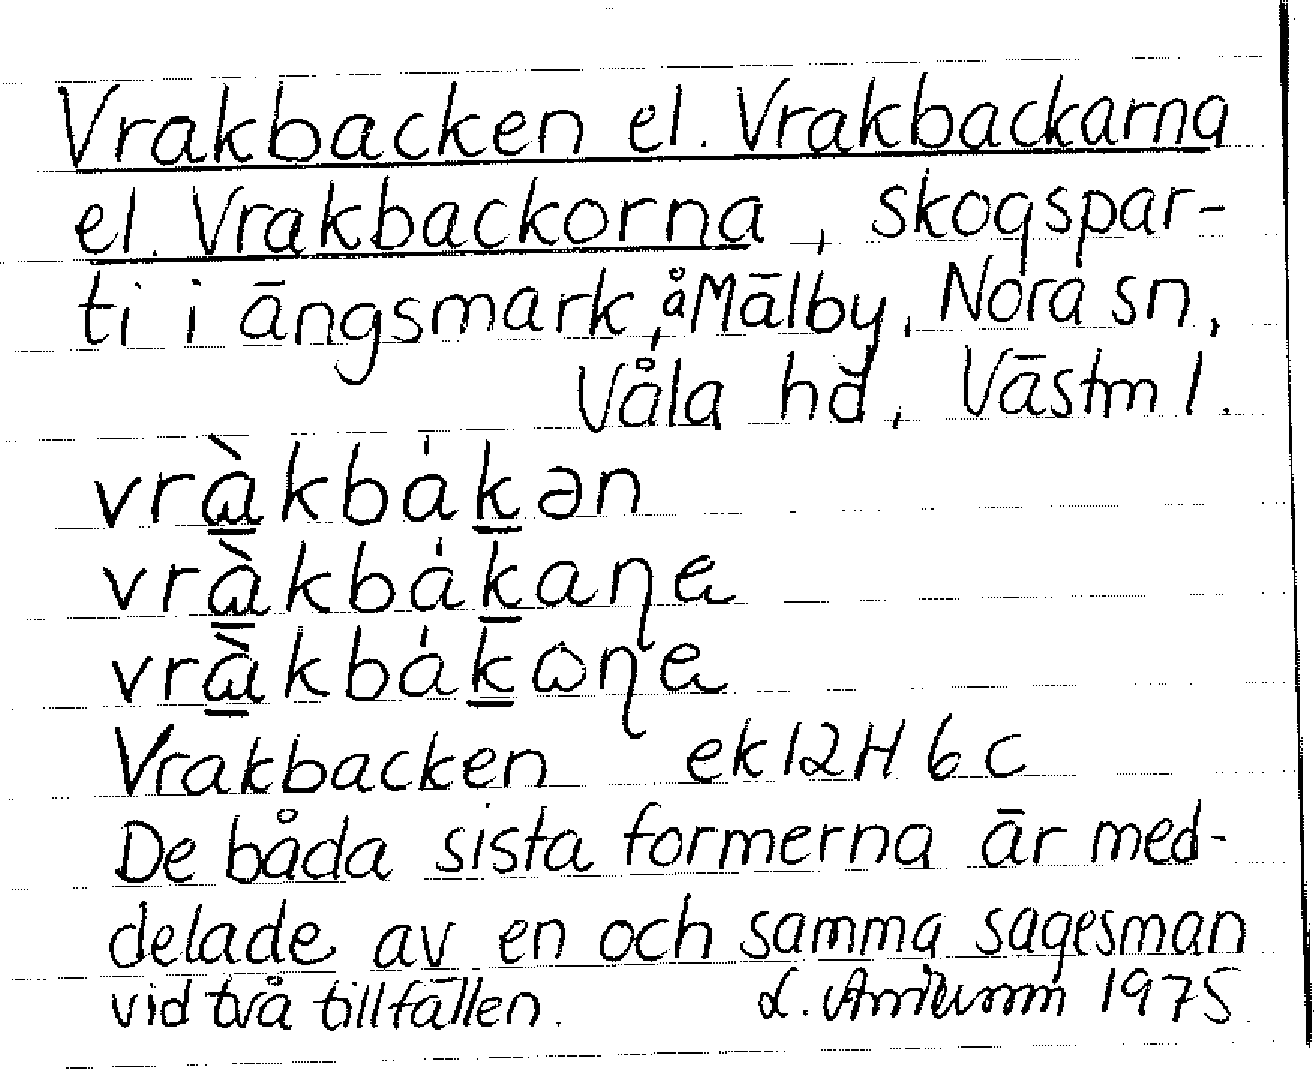 Vrakbacken el. Vrakbackarna
el. Vrakbackorna, skogspar-
ti i ängsmark, å Mälby, Nora sn,
Våla hd, Västm l.
vràkbákən
vràkbákaɳa
vràkbákωɳa
Vrakbacken ek 12H 6c
De båda sista formerna är med-
delade av en och samma sagesman
vid två tillfällen. L. 1975